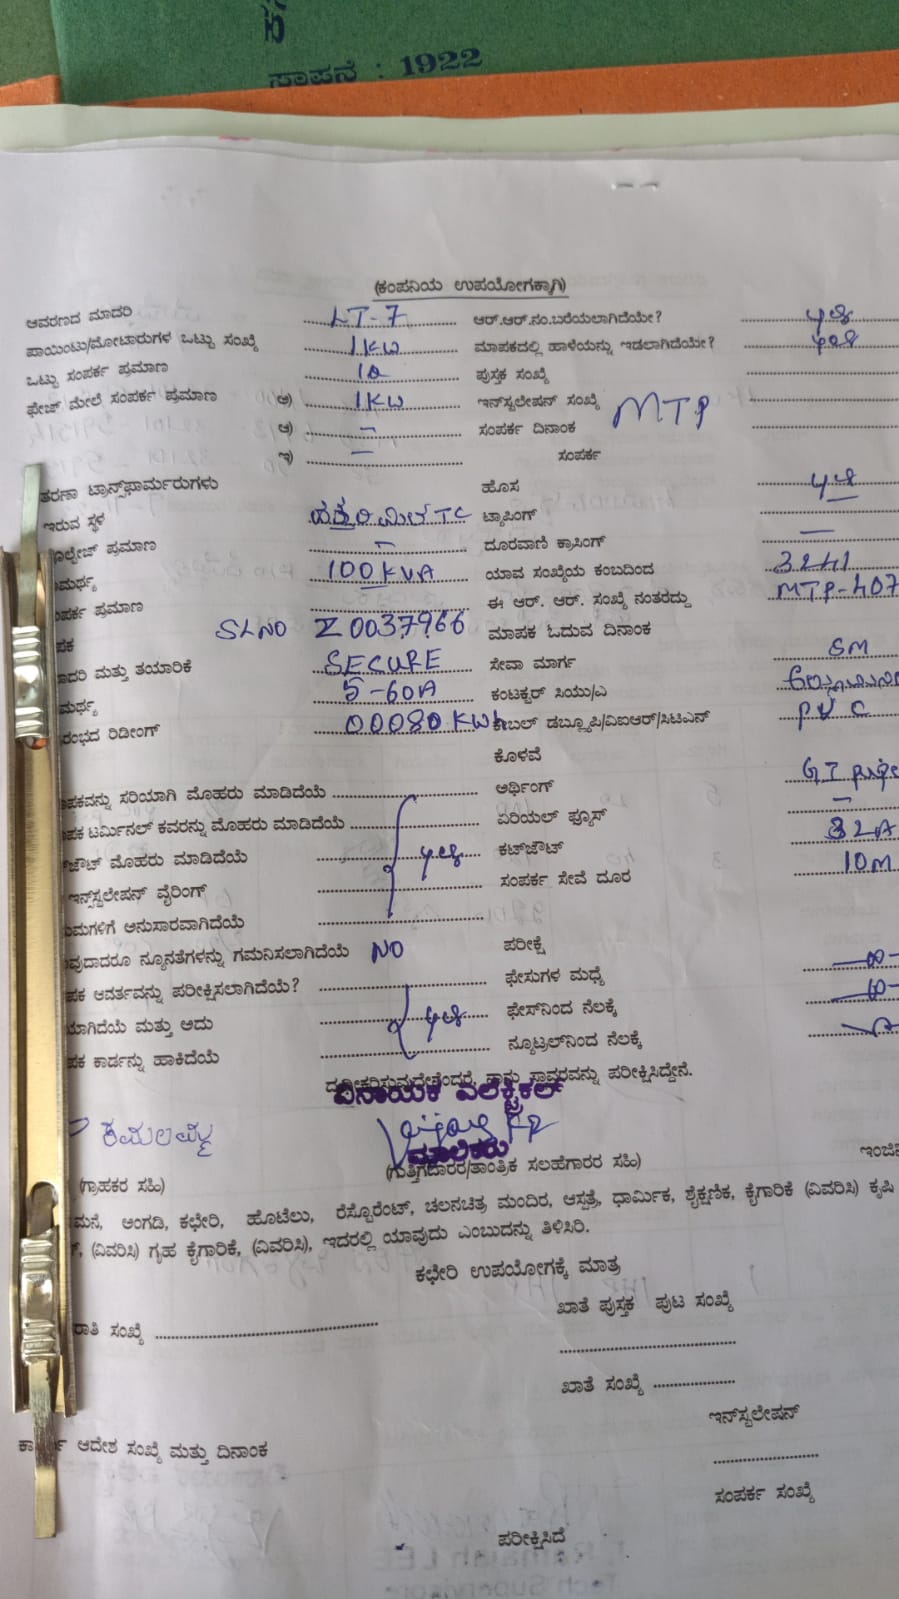 ಸ್ಥಾಪನೆ : 1922
(ಕಂಪನಿಯ ಉಪಯೋಗಕ್ಕಾಗಿ)
ಆವರಣದ ಮಾದರಿ LT-7 ಆರ್.ಆರ್.ನಂ.ಬರೆಯಲಾಗಿದೆಯೇ?
ಪಾಯಿಂಟು/ಮೋಟಾರುಗಳ ಒಟ್ಟು ಸಂಖ್ಯೆ 1KW ಮಾಪಕದಲ್ಲಿ ಹಾಳೆಯನ್ನು ಇಡಲಾಗಿದೆಯೇ?
ಒಟ್ಟು ಸಂಪರ್ಕ ಪ್ರಮಾಣ ಪುಸ್ತಕ ಸಂಖ್ಯೆ
ಫೇಜ್ ಮೇಲೆ ಸಂಪರ್ಕ ಪ್ರಮಾಣ ಅ) 1KW ಇನ್‌ಸ್ಟಲೇಷನ್ ಸಂಖ್ಯೆ MTP
ಆ) – ಸಂಪರ್ಕ ದಿನಾಂಕ
ಇ) – ಸಂಪರ್ಕ
ತರಣಾ ಟ್ರಾನ್ಸ್‌ಫಾರ್ಮರುಗಳು ಹೊಸ
ಇರುವ ಸ್ಥಳ TC ಟ್ಯಾಪಿಂಗ್ –
ೋಲ್ಟೇಜ್ ಪ್ರಮಾಣ – ದೂರವಾಣಿ ಕ್ರಾಸಿಂಗ್ –
ಮರ್ಥ್ಯ 100KVA ಯಾವ ಸಂಖ್ಯೆಯ ಕಂಬದಿಂದ 3241
ಪರ್ಕ ಪ್ರಮಾಣ ಈ ಆರ್. ಆರ್. ಸಂಖ್ಯೆ ನಂತರದ್ದು MTP-407
ಪಕ SLNO Z0037966 ಮಾಪಕ ಓದುವ ದಿನಾಂಕ
ಾದರಿ ಮತ್ತು ತಯಾರಿಕೆ SECURE ಸೇವಾ ಮಾರ್ಗ SM
ಮರ್ಥ್ಯ 5-60A ಕಂಟಕ್ಟರ್ ಸಿಯು/ಎ
ರಂಭದ ರಿಡೀಂಗ್ 00080 KWh ಕೇಬಲ್ ಡಬ್ಲ್ಯೂಪಿ/ವಿಐಆರ್/ಸಿಟಿಎನ್ PVC
ಕೊಳವೆ
ಾಪಕವನ್ನು ಸರಿಯಾಗಿ ಮೊಹರು ಮಾಡಿದೆಯೆ ಅರ್ಥಿಂಗ್ GI pipe
ಾಪಕ ಟರ್ಮಿನಲ್ ಕವರನ್ನು ಮೊಹರು ಮಾಡಿದೆಯೆ ಏರಿಯಲ್ ಫ್ಯೂಸ್ –
್‌ಜೌಟ್ ಮೊಹರು ಮಾಡಿದೆಯೆ ಕಟ್‌ಜೌಟ್ 32A
ಇನ್‌ಸ್ಟಲೇಷನ್ ವೈರಿಂಗ್ ಸಂಪರ್ಕ ಸೇವೆ ದೂರ 10M
ಯಮಗಳಿಗೆ ಅನುಸಾರವಾಗಿದೆಯೆ
ಾವುದಾದರೂ ನ್ಯೂನತೆಗಳನ್ನು ಗಮನಿಸಲಾಗಿದೆಯೆ NO ಪರೀಕ್ಷೆ
ಪಕ ಆವರ್ತವನ್ನು ಪರೀಕ್ಷಿಸಲಾಗಿದೆಯೇ? ಫೇಸುಗಳ ಮಧ್ಯೆ
ಯಾಗಿದೆಯೆ ಮತ್ತು ಅದು ಫೇಸ್‌ನಿಂದ ನೆಲಕ್ಕೆ
ಪಕ ಕಾರ್ಡನ್ನು ಹಾಕಿದೆಯೆ ನ್ಯೂಟ್ರಲ್‌ನಿಂದ ನೆಲಕ್ಕೆ
ದೃಢೀಕರಿಸುವುದೇನೆಂದರೆ, ನಾನು ಸ್ಥಾವರವನ್ನು ಪರೀಕ್ಷಿಸಿದ್ದೇನೆ.
ವಿನಾಯಕ ಎಲೆಕ್ಟ್ರಿಕಲ್
ಮಾಲಿಕರು
(ಗ್ರಾಹಕರ ಸಹಿ) (ಗುತ್ತಿಗೆದಾರರ/ತಾಂತ್ರಿಕ ಸಲಹೆಗಾರರ ಸಹಿ) ಇಂಜಿನಿ
ಮನೆ, ಅಂಗಡಿ, ಕಛೇರಿ, ಹೊಟೆಲು, ರೆಸ್ಟೋರೆಂಟ್, ಚಲನಚಿತ್ರ ಮಂದಿರ, ಆಸ್ಪತ್ರೆ, ಧಾರ್ಮಿಕ, ಶೈಕ್ಷಣಿಕ, ಕೈಗಾರಿಕೆ (ವಿವರಿಸಿ) ಕೃಷಿ
(ವಿವರಿಸಿ) ಗೃಹ ಕೈಗಾರಿಕೆ, (ವಿವರಿಸಿ), ಇದರಲ್ಲಿ ಯಾವುದು ಎಂಬುದನ್ನು ತಿಳಿಸಿರಿ.
ಕಛೇರಿ ಉಪಯೋಗಕ್ಕೆ ಮಾತ್ರ
ರಾತಿ ಸಂಖ್ಯೆ ಖಾತೆ ಪುಸ್ತಕ ಪುಟ ಸಂಖ್ಯೆ
ಖಾತೆ ಸಂಖ್ಯೆ
ಇನ್‌ಸ್ಟಲೇಷನ್
ಆದೇಶ ಸಂಖ್ಯೆ ಮತ್ತು ದಿನಾಂಕ
ಸಂಪರ್ಕ ಸಂಖ್ಯೆ
ಪರೀಕ್ಷಿಸಿದೆ